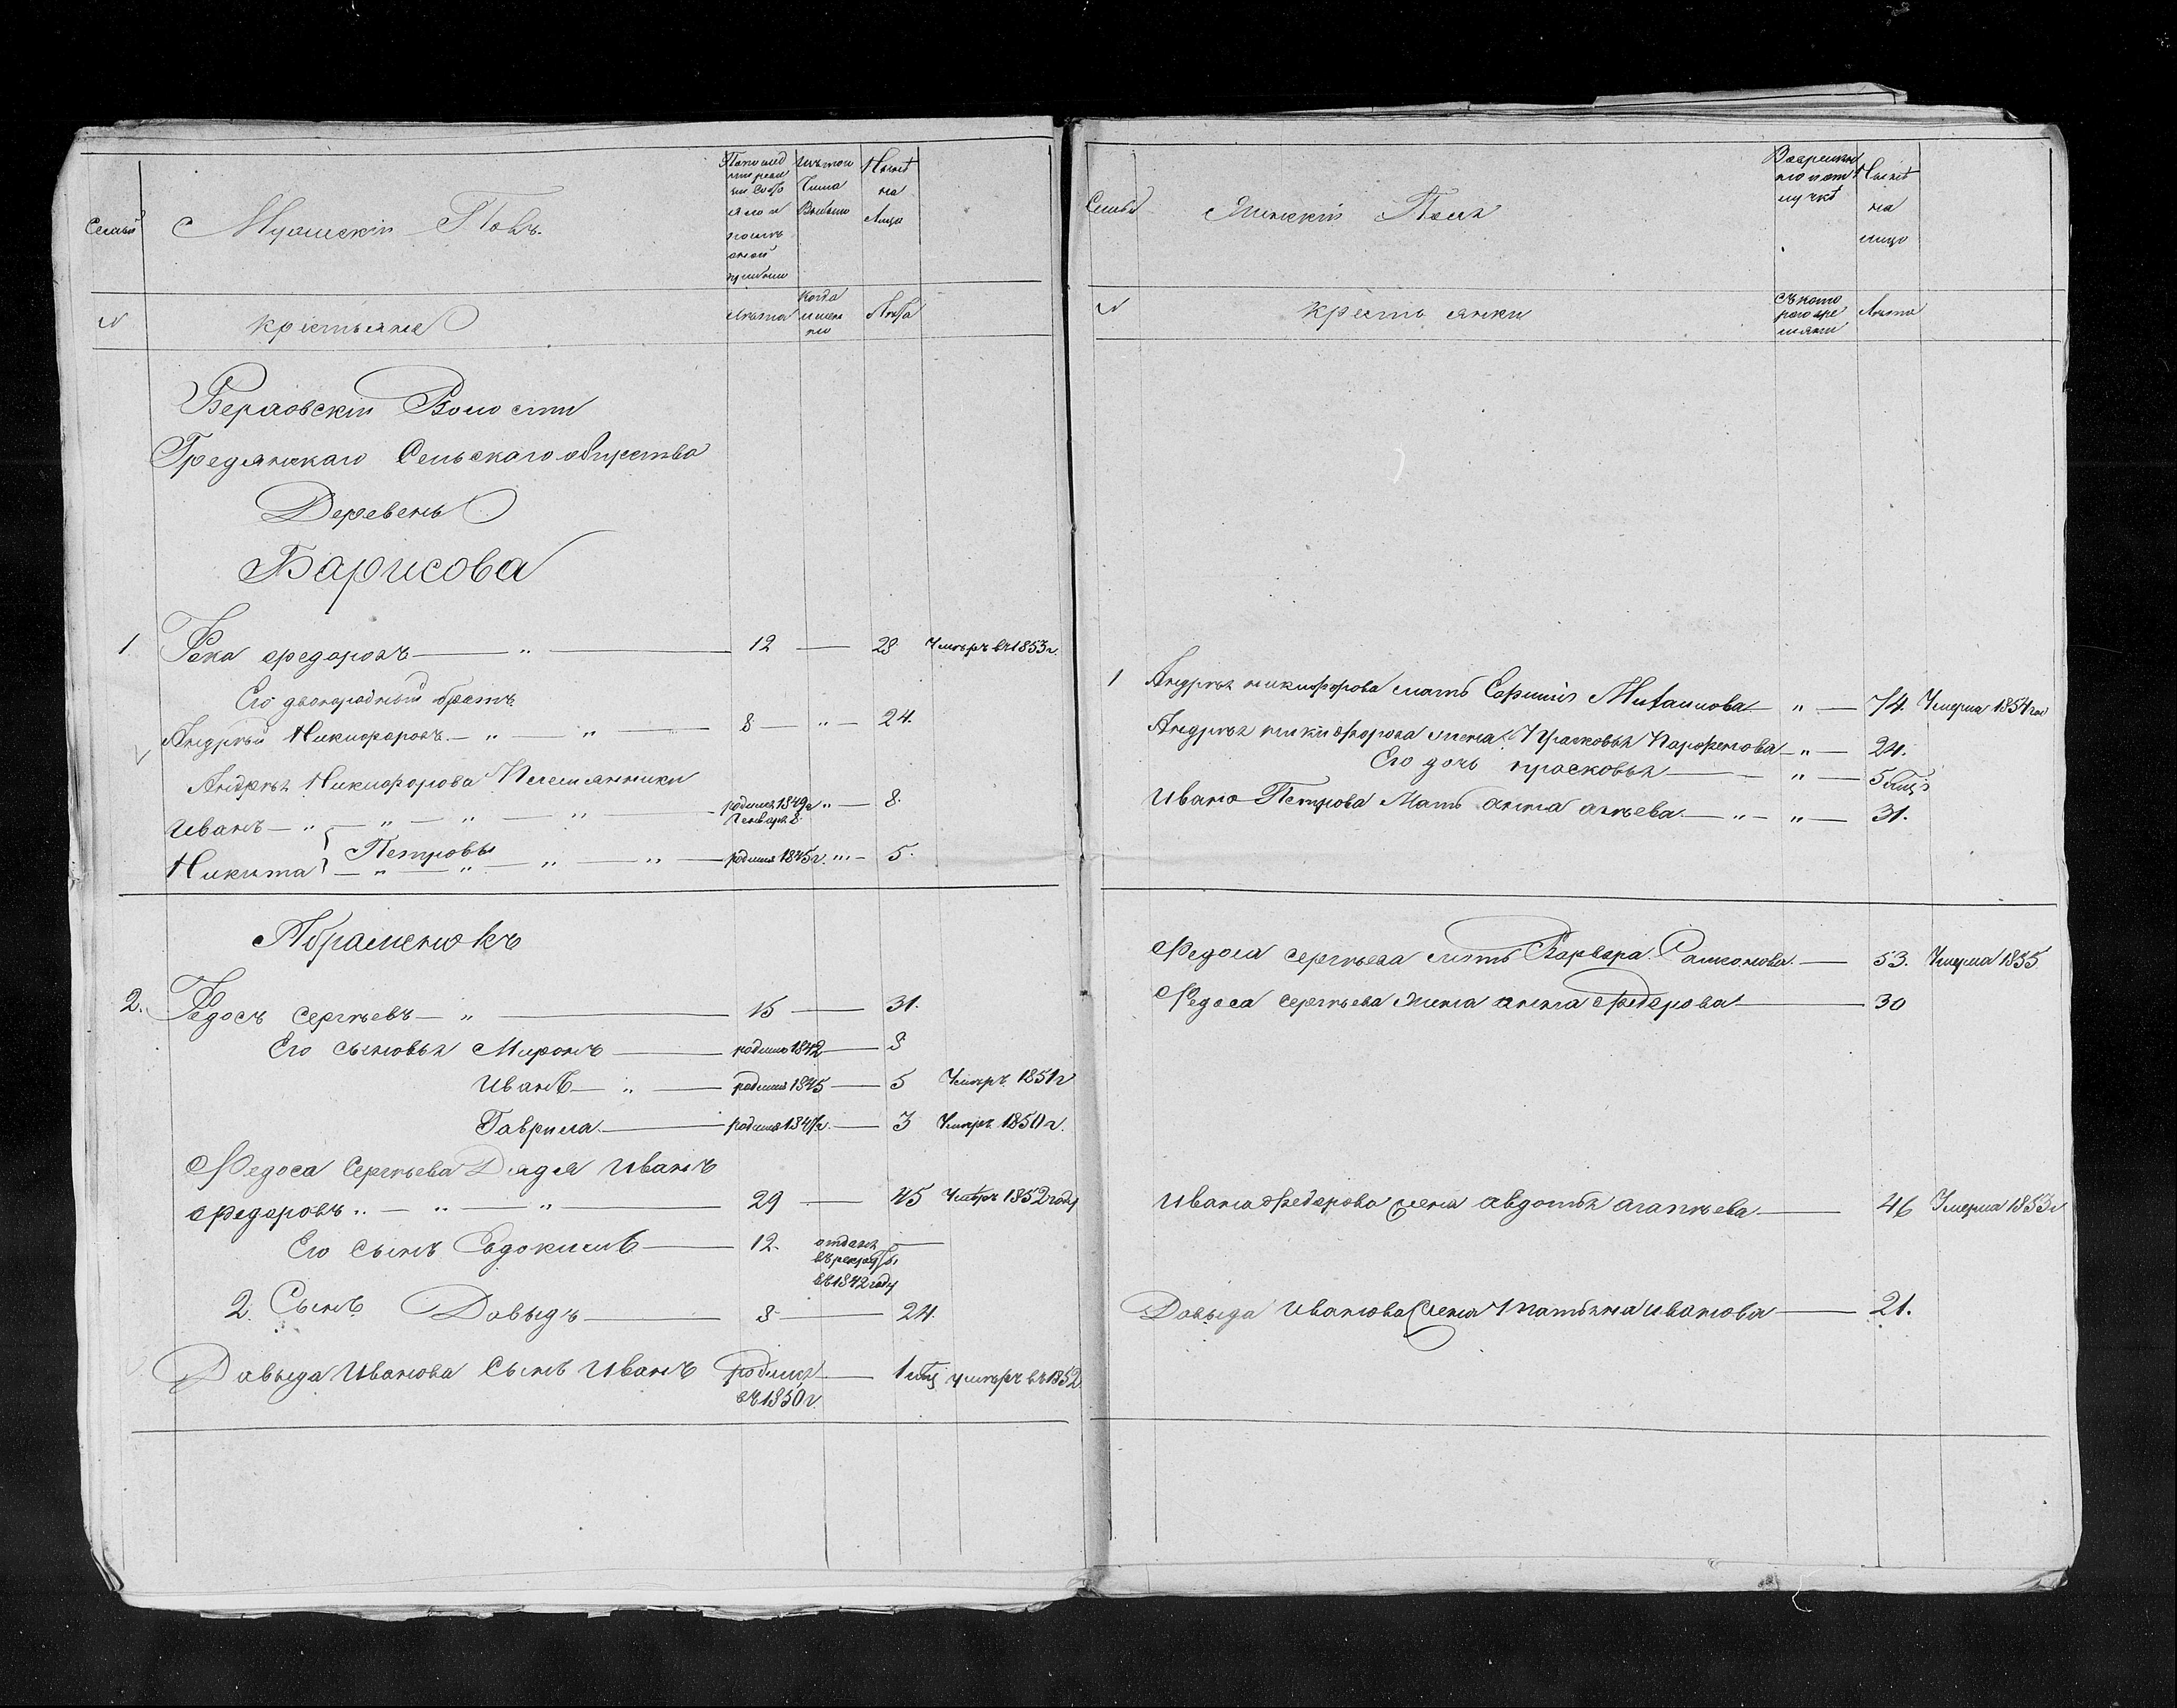 Семьи
Мужескiй Полъ.
По послед
ней реви
зiи состо
яло и
после
оной
прибыло
Изъ того
Числа
Выбыло
Ныне
на
Лицо
№
крестьяне
Лета
Когда
имен
но
Лета
Волости
Гредянскаго Сельскаго общества
Деревень
Барисова
1 Фока Федоровъ — " — 12 — 28. Умеръ въ 1853 г.
Его двоюродный братъ
Андрей Никифоровъ — " — " — 8 — " — 24.
Андрея Никифорова Племянники
Иванъ — " — " — " — " — родился 1842 г " — 8.
Генваря 8.
Никита } Петровы — " — " — " — " — родился 1845 г. " — 5.
Абраменокъ
2. Федосъ Сергеевъ — " — 15 — 31.
Его сыновья Миронъ — родился 1842 — 8
Иванъ — " — родился 1845 — 5 Умеръ 1851 г
Гаврила — родился 1847 г. — 3 Умеръ 1850 г.
Федоса Сергеева Дядя Иванъ
Федоровъ " — " — " — 29 — 45 Умеръ 1852 году
Его Сынъ Евдокимъ — 12. отданъ —
въ рекруты
въ 1842 году
2. Сынъ Давыдъ — 8 — 24.
Давыда Иванова Сынъ Иванъ родился — 1 умеръ въ 1852
въ 1850 г.
Семьи
Женскiй Полъ
Ныне
на
лицо
№
крестьянки
съ кото
раго вре
мяни
Лета
1 Андрея Никифорова мать Михаилова — " — 74. Умерла 1854 год
Андрея Никифорова жена Прасковья Парфенова — " — 24.
Его дочь прасковья — " — 5
Ивана Петрова Мать анна — " — " — 31.
Федоса Сергеева мать Варвара — 53. Умерла 1855.
Федоса Сергеева жена анна Федарова — 30
Ивана Федарова жена авдотья агапьева — 46 Умерла 1853 г
Давыда Иванова жена Татьяна иванова — 21.